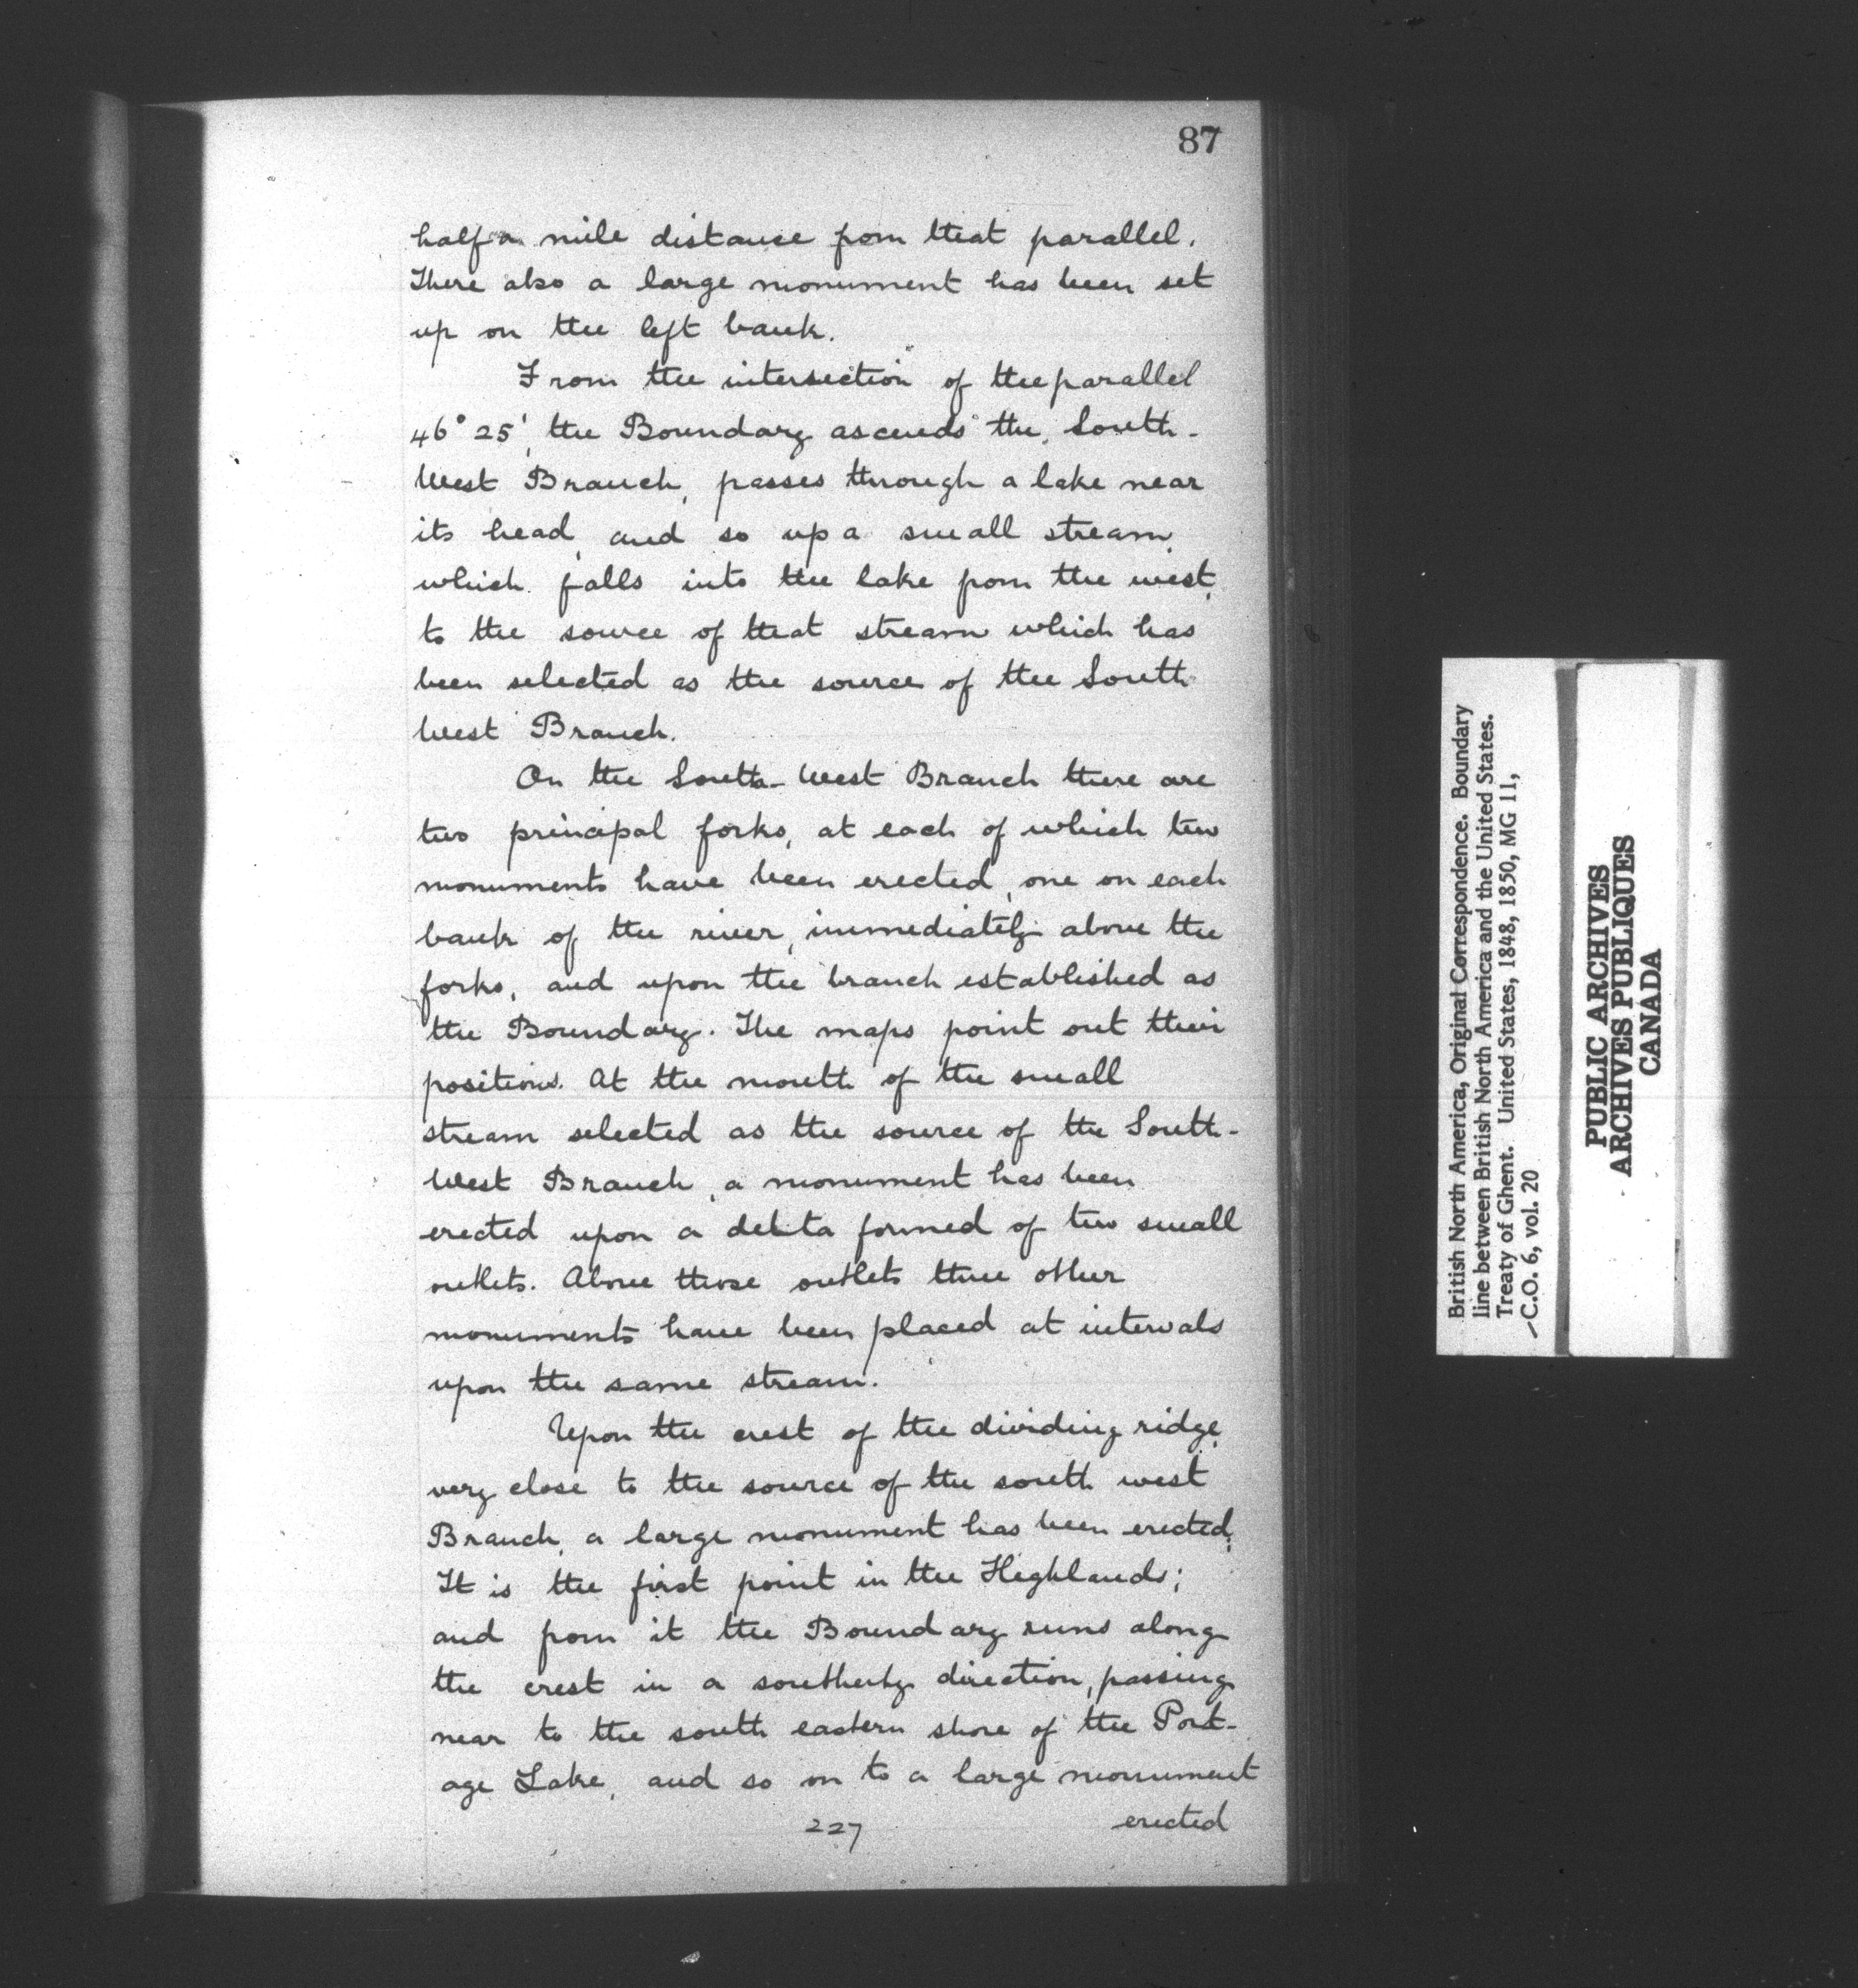 87
half a mile distance from that parallel.
There also a large monument has been set
up on the left bank.
From the intersection of the parallel
46° 25', the Boundary ascends the South-
West Branch, passes through a lake near
its head, and so up a small stream,
which falls into the lake from the west,
to the source of that stream which has
been selected as the source of the South
West Branch.
On the South-West Branch there are
two principal forks, at each of which two
monuments have been erected, one on each
bank of the river, immediately above the
forks, and upon the branch established as
the Boundary. The maps point out their
positions. At the mouth of the small
stream selected as the source of the South-
West Branch, a monument has been
erected upon a delta formed of two small
outlets. Above those outlets three other
monuments have been placed at intervals
upon the same stream.
Upon the crest of the dividing ridge,
very close to the source of the south west
Branch, a large monument has been erected;
It is the first point in the Highlands;
and from it the Boundary runs along
the crest in a southerly direction, passing
near to the south eastern shore of the Port-
age Lake, and so on to a large monument
227
erected
British North America, Original Correspondence. Boundary
line between British North America and the United States.
Treaty of Ghent. United States, 1848, 1850, MG 11,
C.O. 6, vol. 20
PUBLIC ARCHIVES
ARCHIVES PUBLIQUES
CANADA